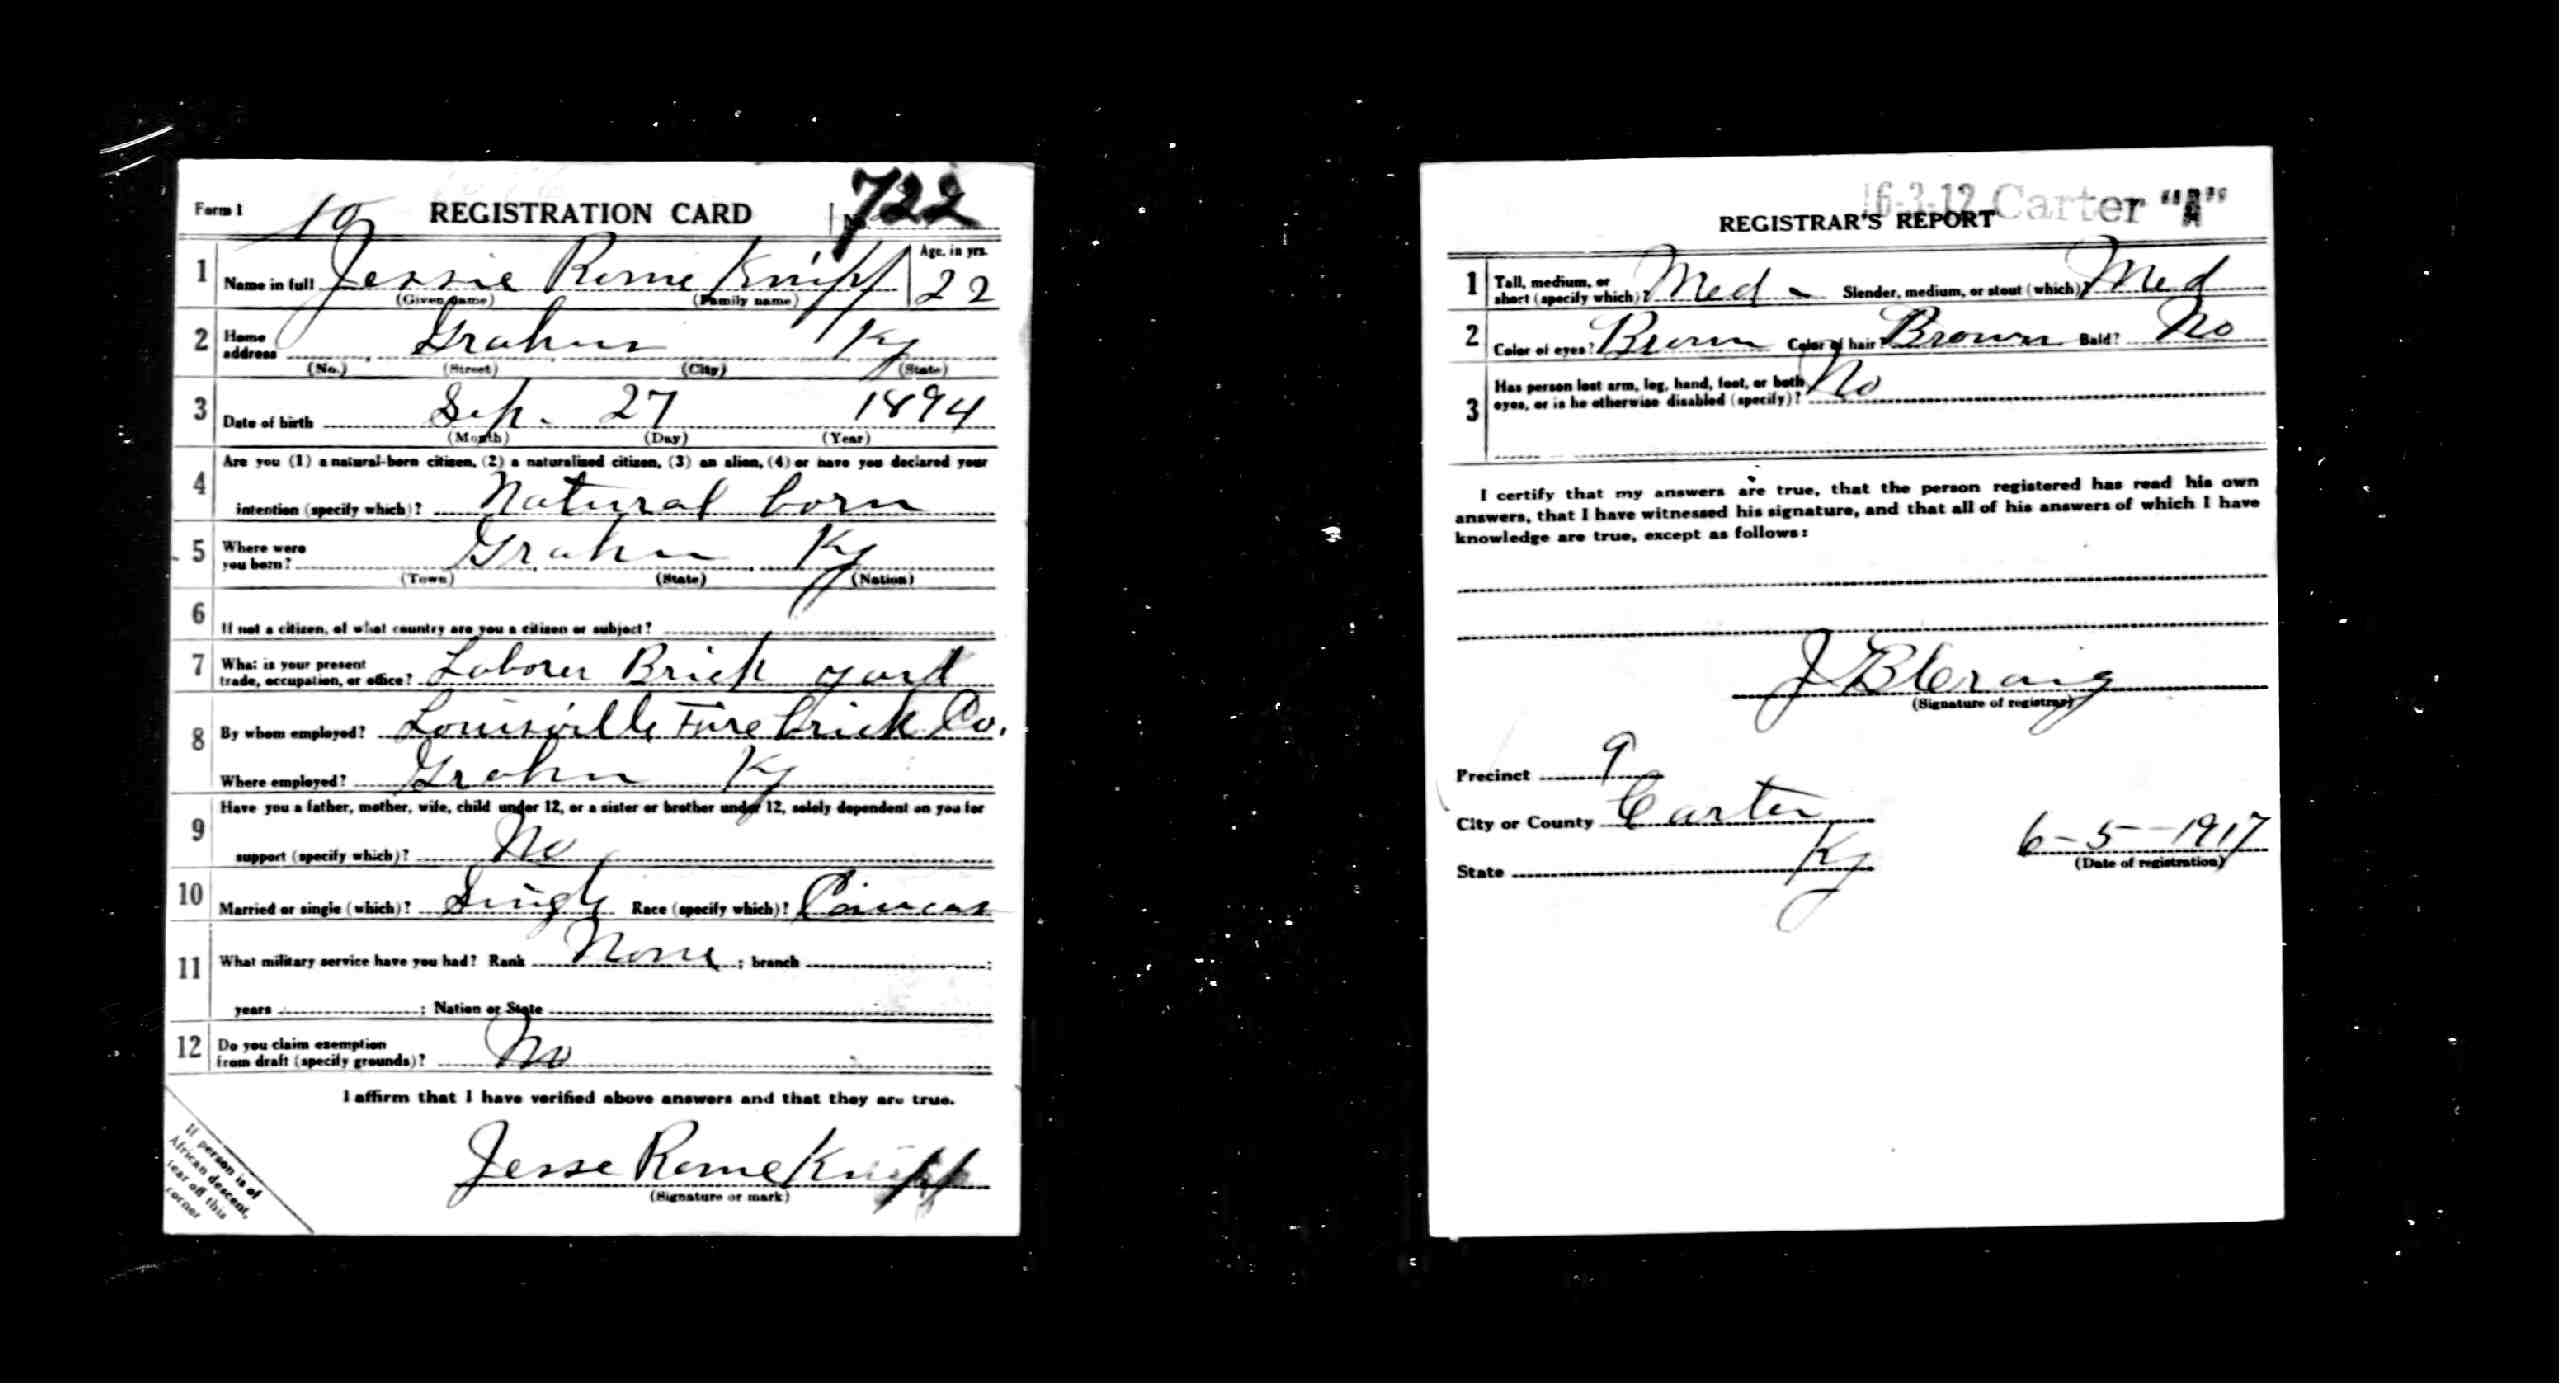 Form 1 19 REGISTRATION CARD No. 722
1 Name in full Jessie Rome Knipp Age, in yrs. 22
(Given name) (Family name)
2 Home address Grahn Ky
(No.) (Street) (City) (State)
3 Date of birth Sep. 27 1894
(Month) (Day) (Year)
4 Are you (1) a natural-born citizen, (2) a naturalized citizen, (3) an alien, (4) or have you declared your
intention (specify which)? Natural born
5 Where were you born? Grahn Ky
(Town) (State) (Nation)
6 If not a citizen, of what country are you a citizen or subject?
7 What is your present trade, occupation, or office? Laborer Brick yard
8 By whom employed? Louisville Fire brick Co.
Where employed? Grahn Ky
9 Have you a father, mother, wife, child under 12, or a sister or brother under 12, solely dependent on you for
support (specify which)? No
10 Married or single (which)? Single Race (specify which)?
11 What military service have you had? Rank None ; branch ;
years ; Nation or State
12 Do you claim exemption from draft (specify grounds)? No
I affirm that I have verified above answers and that they are true.
Jesse Rome Knipp
(Signature or mark)
If person is of
African descent,
tear off this
corner
16-3-12 Carter "A"
REGISTRAR'S REPORT
1 Tall, medium, or short (specify which)? Med - Slender, medium, or stout (which)? Med
2 Color of eyes? Brown Color of hair? Brown Bald? No
3 Has person lost arm, leg, hand, foot, or both
eyes, or is he otherwise disabled (specify)? No
I certify that my answers are true, that the person registered has read his own
answers, that I have witnessed his signature, and that all of his answers of which I have
knowledge are true, except as follows:
J B Craig
(Signature of registrar)
Precinct 9
City or County Carter
State Ky 6-5-1917
(Date of registration)